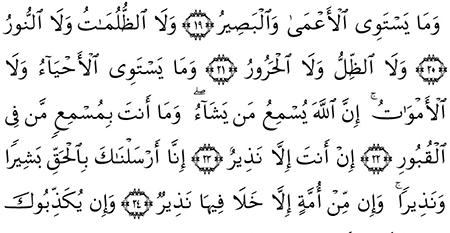 وَمَا يَسْتَوِى ٱلْأَعْمَىٰ وَٱلْبَصِيرُ ﴿١٩﴾ وَلَا ٱلظُّلُمَـٰتُ وَلَا ٱلنُّورُ
﴿٢٠﴾ وَلَا ٱلظِّلُّ وَلَا ٱلْحَرُورُ ﴿٢١﴾ وَمَا يَسْتَوِى ٱلْأَحْيَآءُ وَلَا
ٱلْأَمْوَٰتُ ۚ إِنَّ ٱللَّهَ يُسْمِعُ مَن يَشَآءُ ۖ وَمَآ أَنتَ بِمُسْمِعٍ مَّن فِى
ٱلْقُبُورِ ﴿٢٢﴾ إِنْ أَنتَ إِلَّا نَذِيرٌ ﴿٢٣﴾ إِنَّآ أَرْسَلْنَـٰكَ بِٱلْحَقِّ بَشِيرًا
وَنَذِيرًا ۚ وَإِن مِّنْ أُمَّةٍ إِلَّا خَلَا فِيهَا نَذِيرٌ ﴿٢٤﴾ وَإِن يُكَذِّبُوكَ